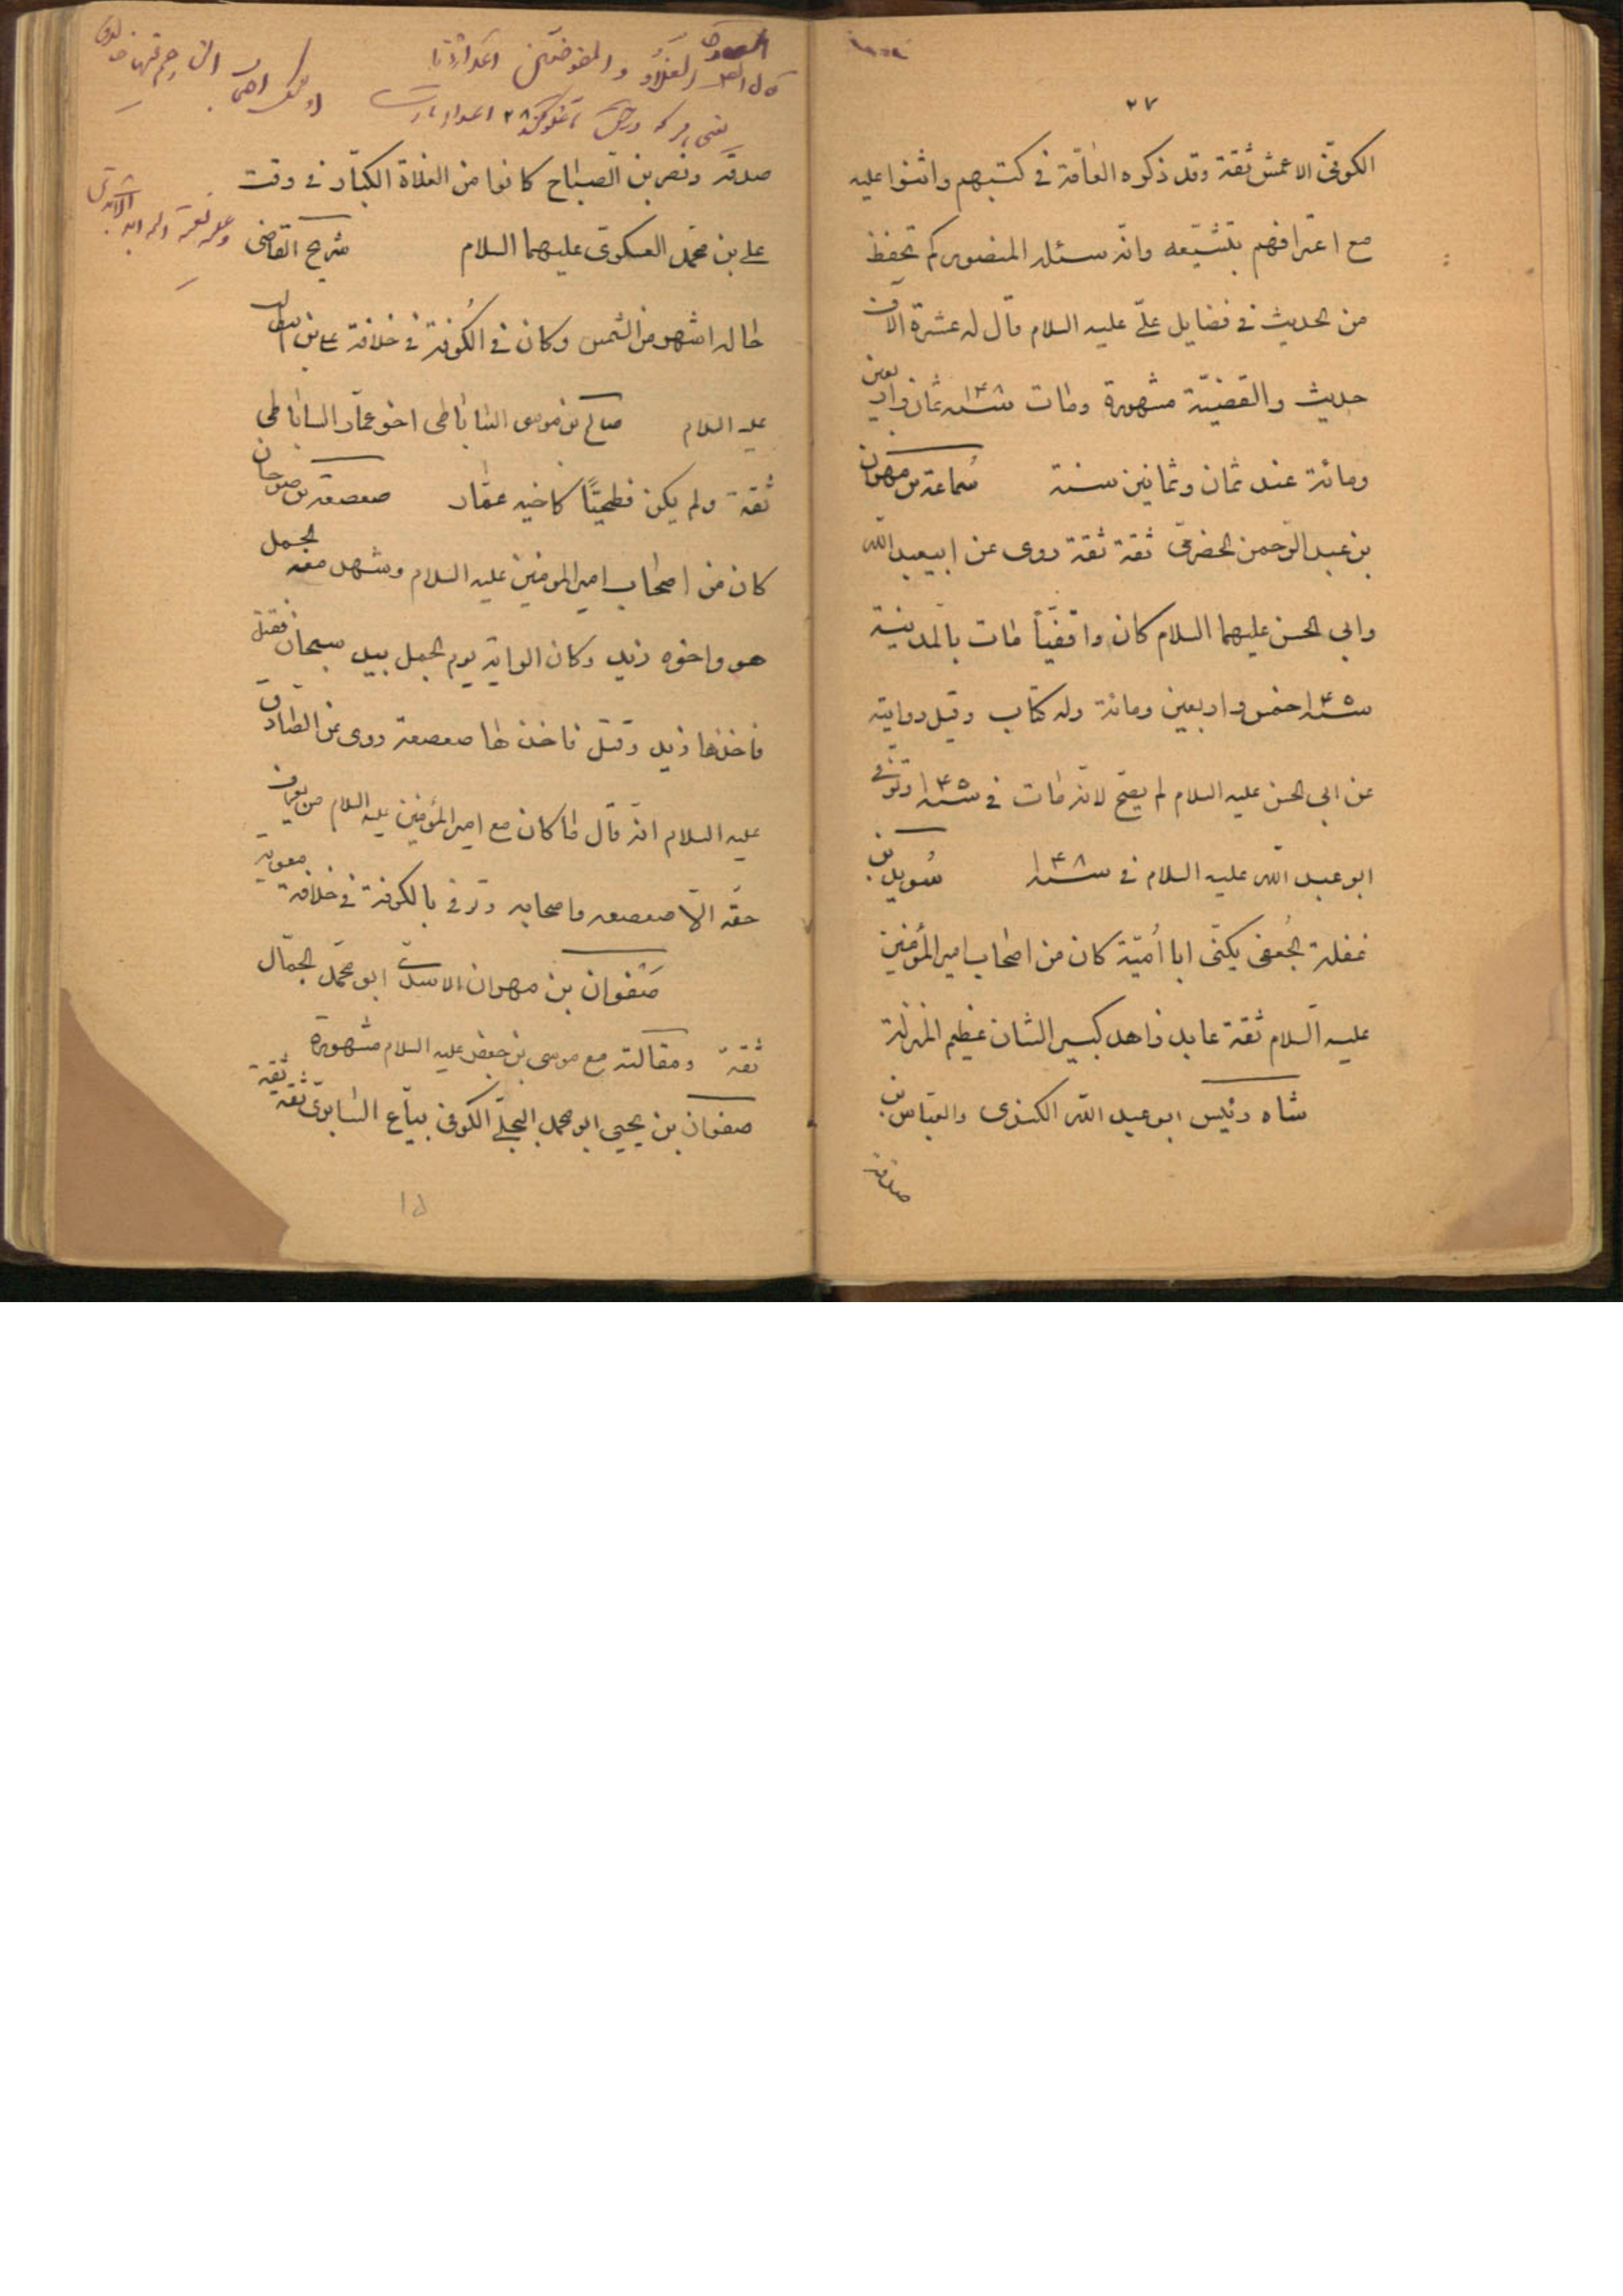 ٢٧
الكوفى الاعمش ثقة وقد ذكره العامّة فى كتبهم واثنوا عليه
مع اعترافهم بتشيّعه وانّه سئله المنصور كم تحفظ
من الحديث فى فضايل علىّ عليه السلام قال له عشرة الآف
حديث والقضيّة مشهورة ومات سنه ١۴٨ ثمان واربعين
ومائة عند ثمان وثمانين سنة سُماعة بن مهران
بن عبد الرّحمن الحضرمى ثقة ثقة روى عن ابيعبد الله
وابى الحسن عليهما السلام كان واقفيّاً مات بالمدينة
سنه ١۴۵ خمس واربعين ومائة وله كتاب وقيل روايته
عن ابى الحسن عليه السلام لم يصحّ لانّه مات فى سنه ١۴۵ وتوفّى
ابو عبد الله عليه السلام فى سنه ١۴٨ سُويد بن
غفلة الجُعفى يكنّى ابا اُميّة كان من اصحاب امير المؤمنين
عليه السّلام ثقة عابد زاهد كبير الشان عظيم المنزلة
شاه رئيس ابو عبد الله الكندى والعبّاس بن
صدقة
صدقة ونصر بن الصباح كانوا من الغلاة الكبّار فى وقت
على بن محمّد العسكرى عليهما السلام شريح القاضى
حاله اشهر من الشمس وكان فى الكُوفة فى خلافة على بن ابيطالب
عليه السلام صالح بن موسى الساباطى اخو عمّار الساباطى
ثقة ولم يكن فطحيّاً كاخيه عمّار صعصعة بن صوحان
كان من اصحاب امير المومنين عليه السلام وشهد معه الجمل
هو واخوه زيد وكان الراية يوم الجمل بيد سيحان فقتل
فاخذها زيد وقتل فاخذها صعصعة روى عن الصادق
عليه السلام انّه قال ما كان مع امير المؤمنين عليه السلام من يعرف
حقّه الاّ صعصعه واصحابه وتوفى بالكوفة فى خلافة معوية
صَفوان بن مهران الاسدىّ ابو محمّد الجمّال
ثقة ومقالته مع موسى بن جعفر عليه السلام مشهورة
صفوان بن يحيى ابو محمد البجلىّ الكوفى بيّاع السّابرىّ ثقة ثقة
١۵